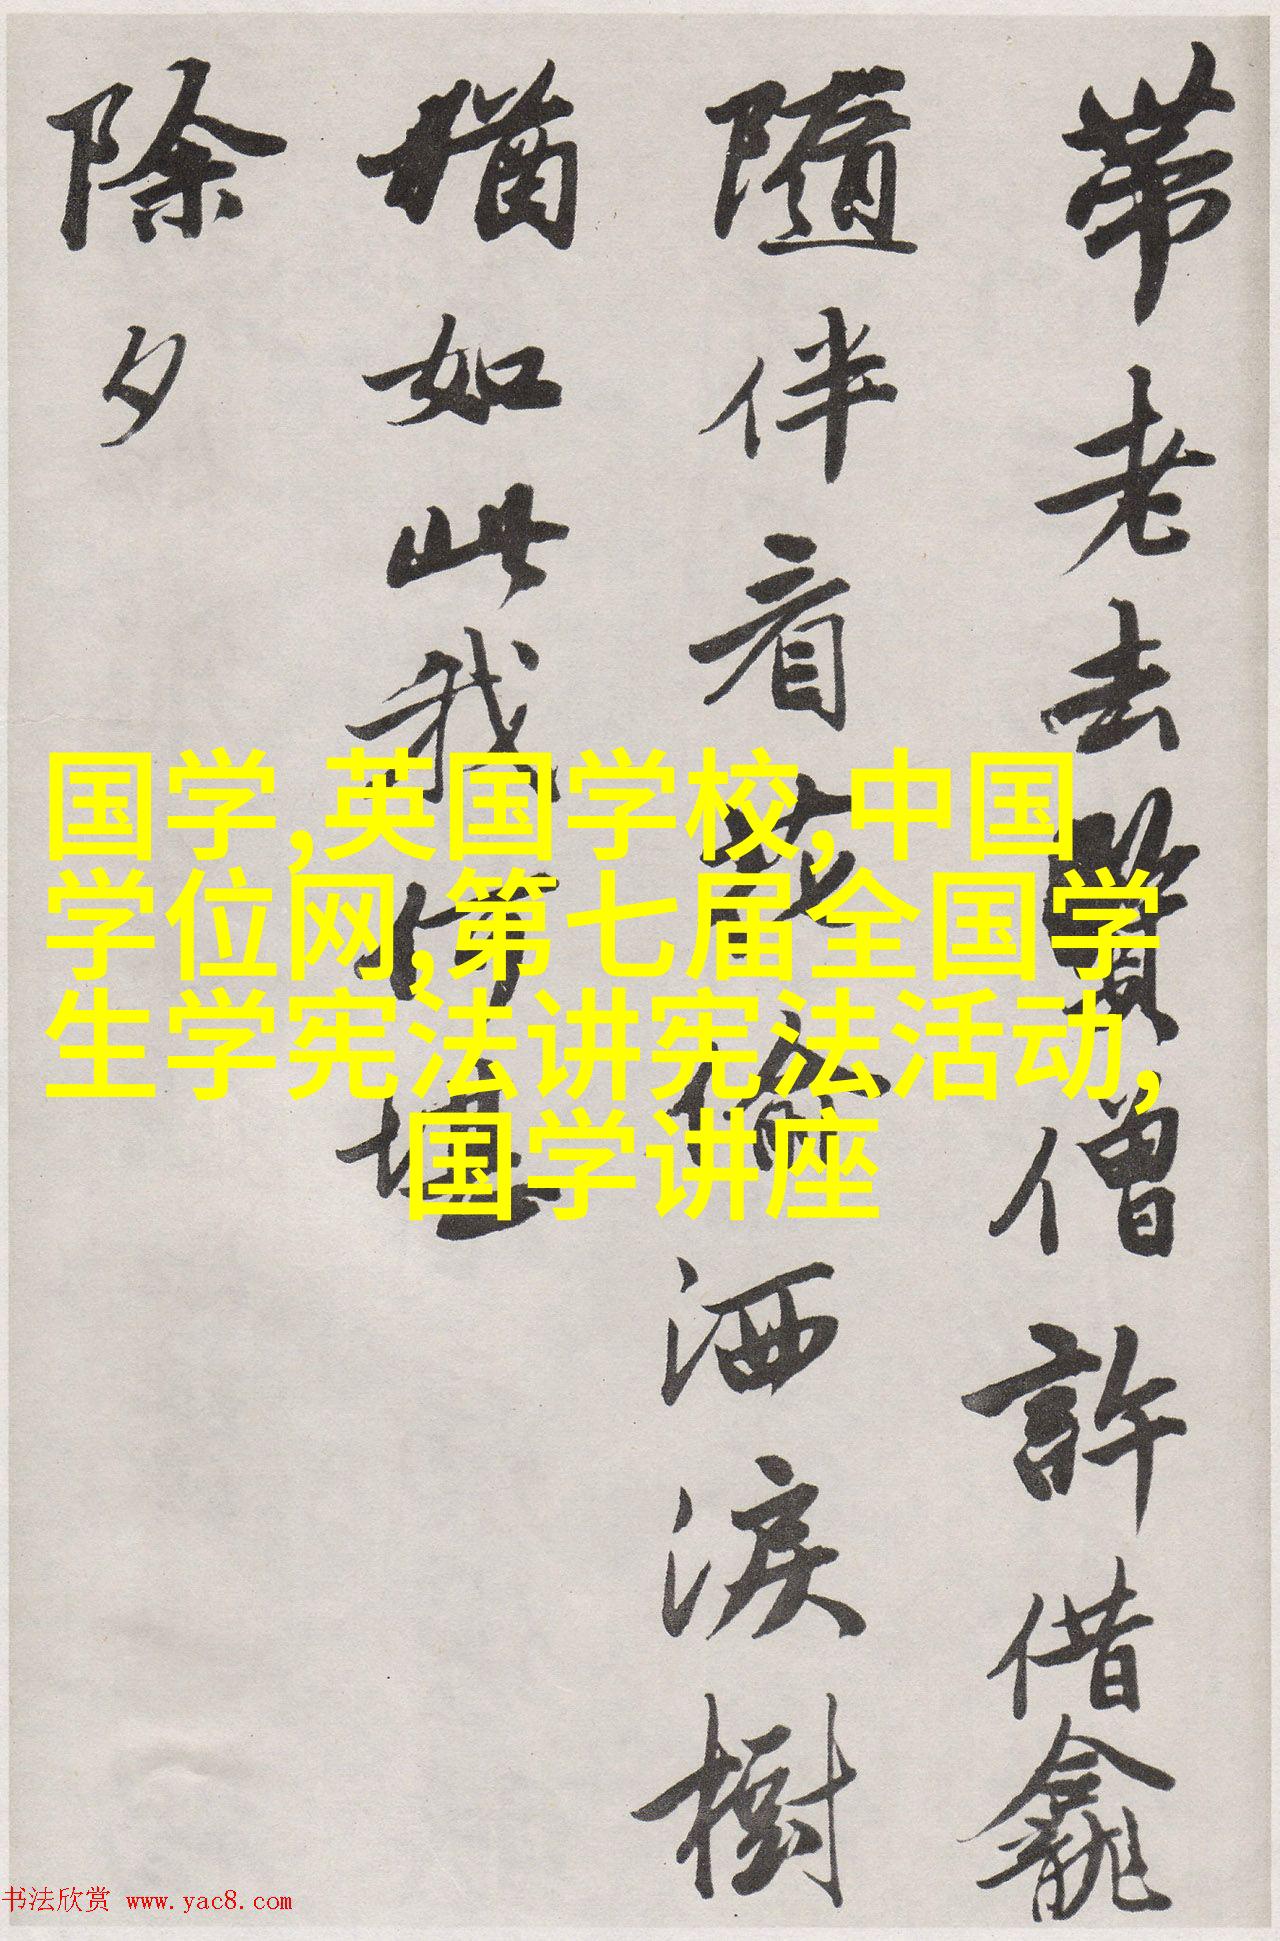 帶老去賢僧許借龕
隨伴看花偷洒淚樹
猶如此我何堪
除夕
国学,英国学校,中国
学位网,第七届全国学
生学宪法讲宪法活动,
国学讲座
书法欣赏 www.yac8.com